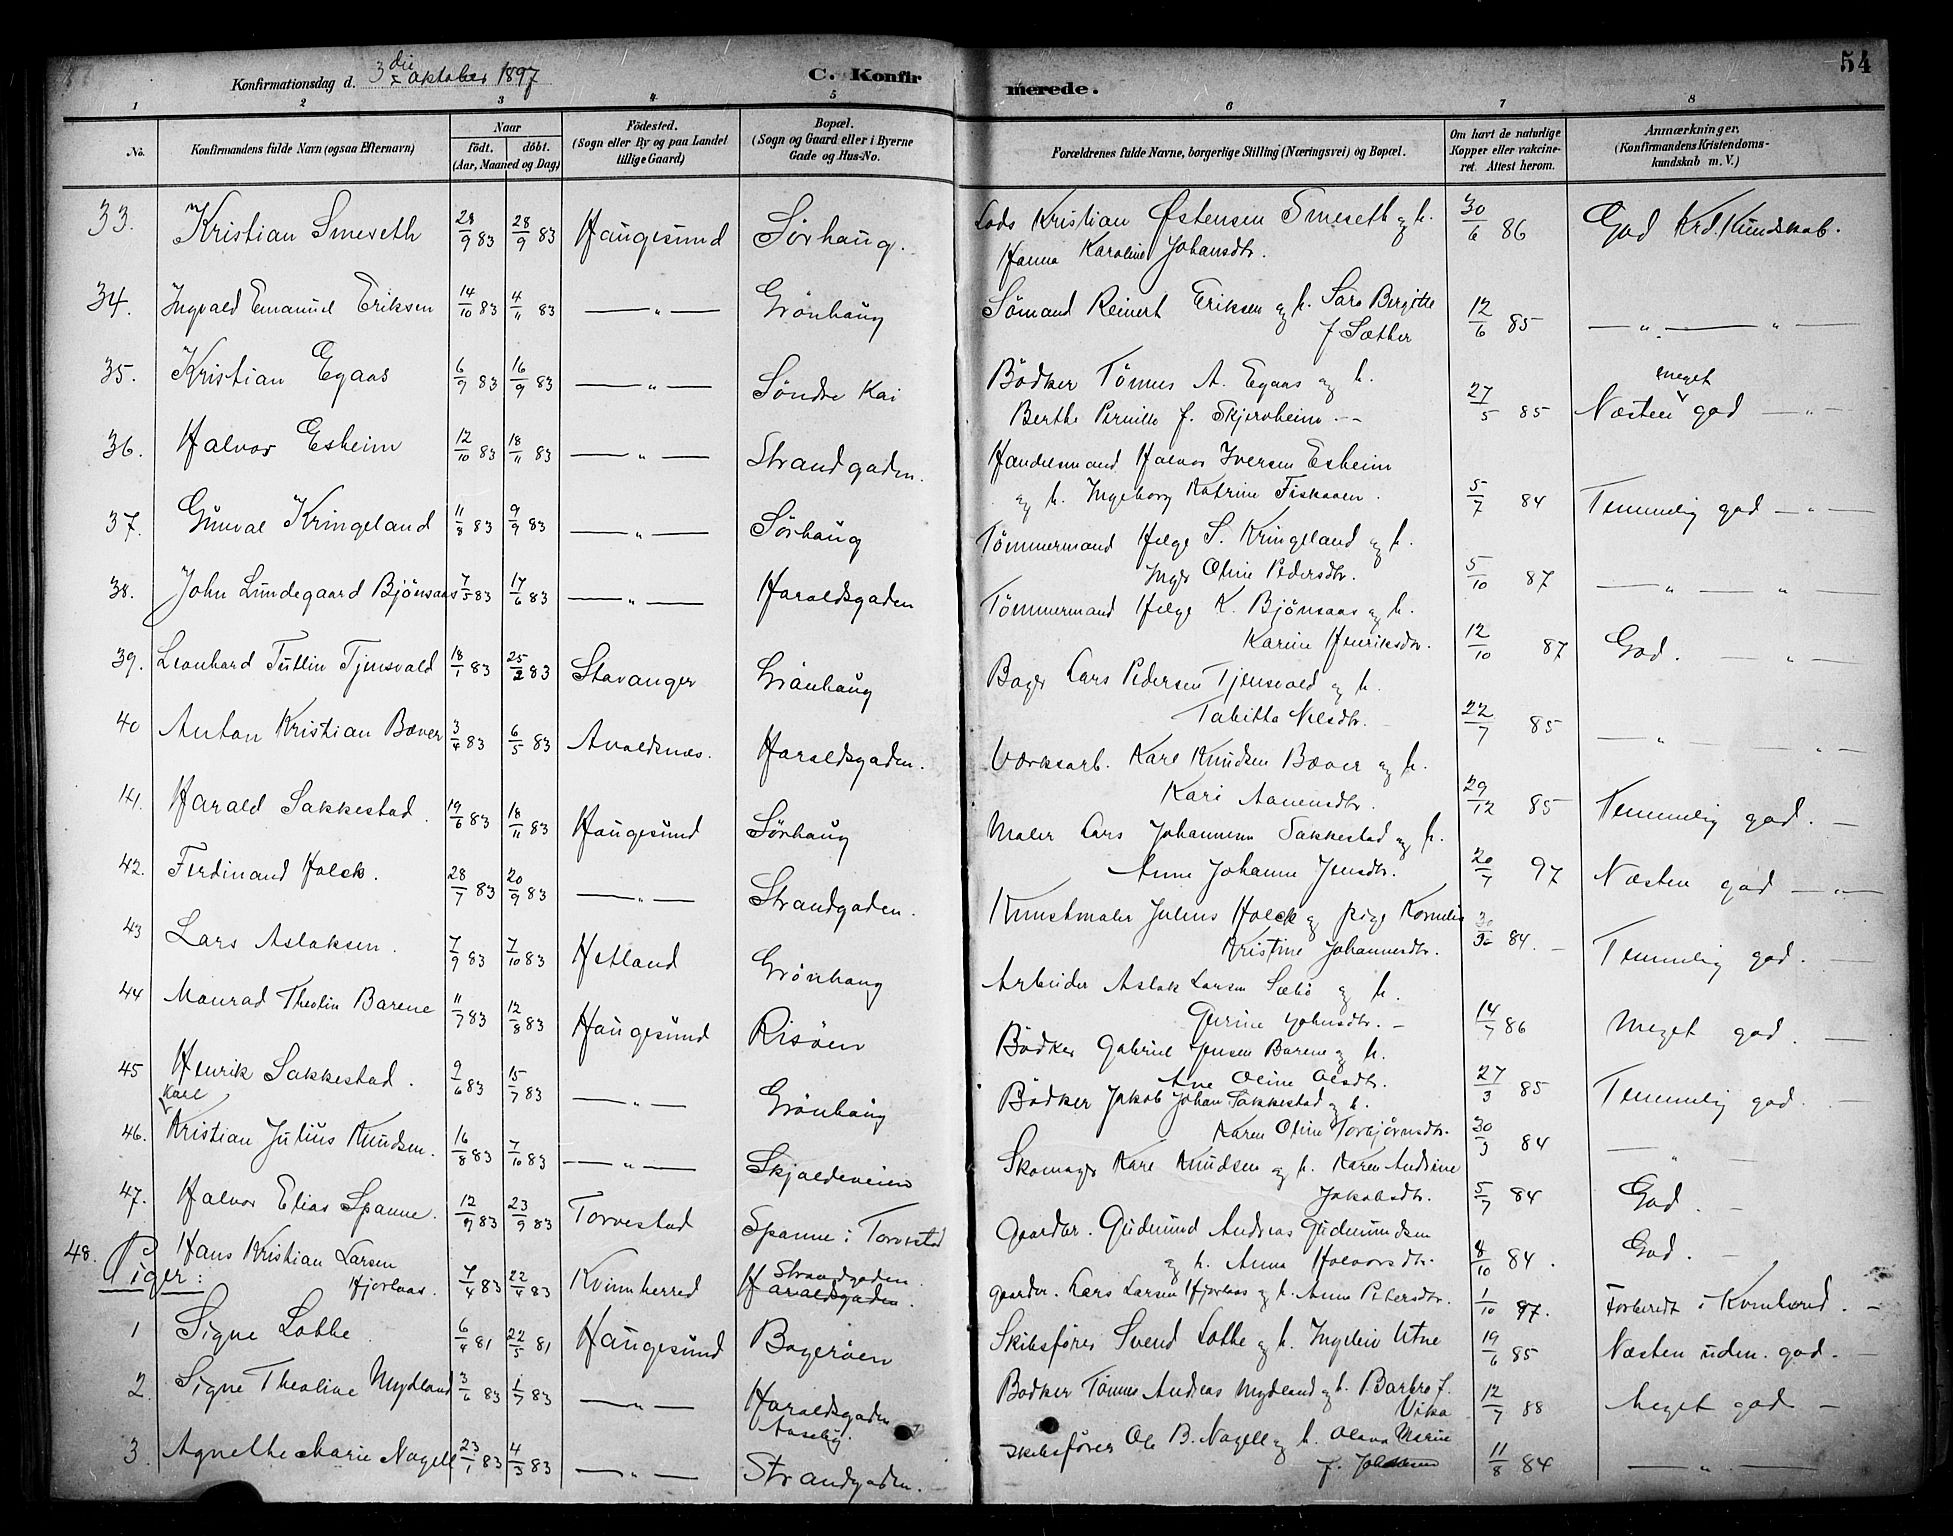 54
Konfirmationsdag d. 3die oktober 1897 C. Konfirmerede.
1 2 3 4 5 6 7 8
No. Konfirmandens fulde Navn (ogsaa Efternavn) Naar födt. döbt. (Aar, Maaned og Dag) Födested. (Sogn eller By og paa Landet tillige Gaard) Bopæl. (Sogn og Gaard eller i Byerne Gade og Hus-No. Forældrenes fulde Navne, borgerlige Stilling (Næringsvei) og Bopæl. Om havt de naturlige Kopper eller vakcineret. Attest herom. Anmærkninger. (Konfirmandens Kristendomskundskab m. V.)
33. Kristian Smeseth 28/9 83 Haugesund Sörhaug. Lods Kristian Østensen Smeseth og h. 30/6 86 God Krd. Kundskab.
Hanna Karoline Johansdtr.
34. Ingvald Emanuel Eriksen 14/10 83 4/11 83 — " — Grönhaug Sömand Reinert Eriksen og h. Sara Bergitte 12/6 85 — " — " —
f Sæther
35. Kristian Egaas 6/9 83 16/9 83 — " — Söndre Kai Bödker Tönnes A. Egaas og h.
Berthe Pernille f. Skjervheim 27/5 85 Næsten meget god — " —
36. Halvor Esheim 12/10 83 18/11 83 — " — Strandgaden. Handelsmand Halvor Iversen Esheim
og h. Ingeborg Katrine Fiskaaen. 5/7 84 Temmelig god — " —
37. Gunval Kringeland 11/8 83 9/9 83 — " — Sörhaug Tömmermand Helge S. Kringeland og h.
Inger Oline Pedersdtr. 5/10 87 — " — " —
38. John Lundegaard Bjönsaas 7/5 83 17/6 83 — " — Haraldsgaden Tömmermand Helge K. Bjönsaas og h.
Karine Henriksdtr. 12/10 87 God. — " —
39. Leonhard Tullin Tjensvold 18/1 83 25/2 83 Stavanger Grönhaug Bager Lars Pedersen Tjensvold og h.
Tabitta Nilsdtr. 22/7 85 — " — " —
40 Anton Kristian Bæver 3/4 83 6/5 83 Avaldsnæs. Haraldsgaden. Værksarb. Karl Knudsen Bæver og h.
Kari Aanensdtr. 29/12 85 Temmelig god. —
41. Harald Sakkestad. 19/6 83 18/11 83 Haugesund Sörhaug Maler Lars Johannesen Sakkestad og h.
Anne Johanne Jensdtr. 20/7 97 Næsten god — " —
42. Ferdinand Holck. 28/7 83 20/9 83 — " — Strandgaden. Kunstmaler Julius Holck og pige Kornelia
Kristine Johannesdtr. 84. — Temmelig god. —
43 Lars Aslaksen. 7/9 83 7/10 83 Hetland Grönhaug Arbeider Aslak Larsen Sæbö og h.
Gurine Johnsdtr. — 14/7 86 Meget god. —
44 Monrad Theolin Barene 11/7 83 12/8 83 Haugesund Risöen Bödker Gabriel Jensen Barene og h.
Ane Oline Olsdtr. 27/3 85 Temmelig god. —
45 Henrik Sakkestad. 9/6 83 15/7 83 — " — Grönhaug Bödker Jakob Johan Sakkestad og h.
Karen Oline Torbjörnsdtr. 30/3 84 — " —
46. Karl Kristian Julius Knudsen. 16/8 83 7/10 83 — " — Skjoldeveien Skomager Karl Knudsen og h. Karen Andrine
Jakobsdtr. 5/7 84 God. —
47. Halvor Elias Spanne. 12/9 83 23/9 83 Torvestad Spanne i Torvestad Gaardbr. Gudmund Andreas Gudmundsen
og h. Anna Halvorsdtr. 8/10 84. God. —
48. Hans Kristian Larsen
Hjortaas. 7/4 83 22/4 83 Kvinnherred Strandgaden. Haraldsgaden. gaardbr. Lars Larsen Hjortaas og h. Anna Petersdtr. 1/10 97. Forberedt i Kvinherred. —
Piger:
1 Signe Lothe. 6/4 81 22/5 81 Haugesund Bageröen Skibsförer Svend Lothe og h. Ingeleiv Utne 19/6 85 Næsten uden. god. —
2. Signe Theoline Mydland 3/6 83 1/7 83 — " — Haraldsgaden Aaseby. Bödker Tönnes Andreas Mydland og h. Barbro f.
Vika 12/7 88 Meget god —
3. Agnethe Marie Nagell 23/1 83 4/3 83 — " — Strandgaden. Skibsförer Ole B. Nagell og h. Olava Marie
f. 11/8 84 — " —